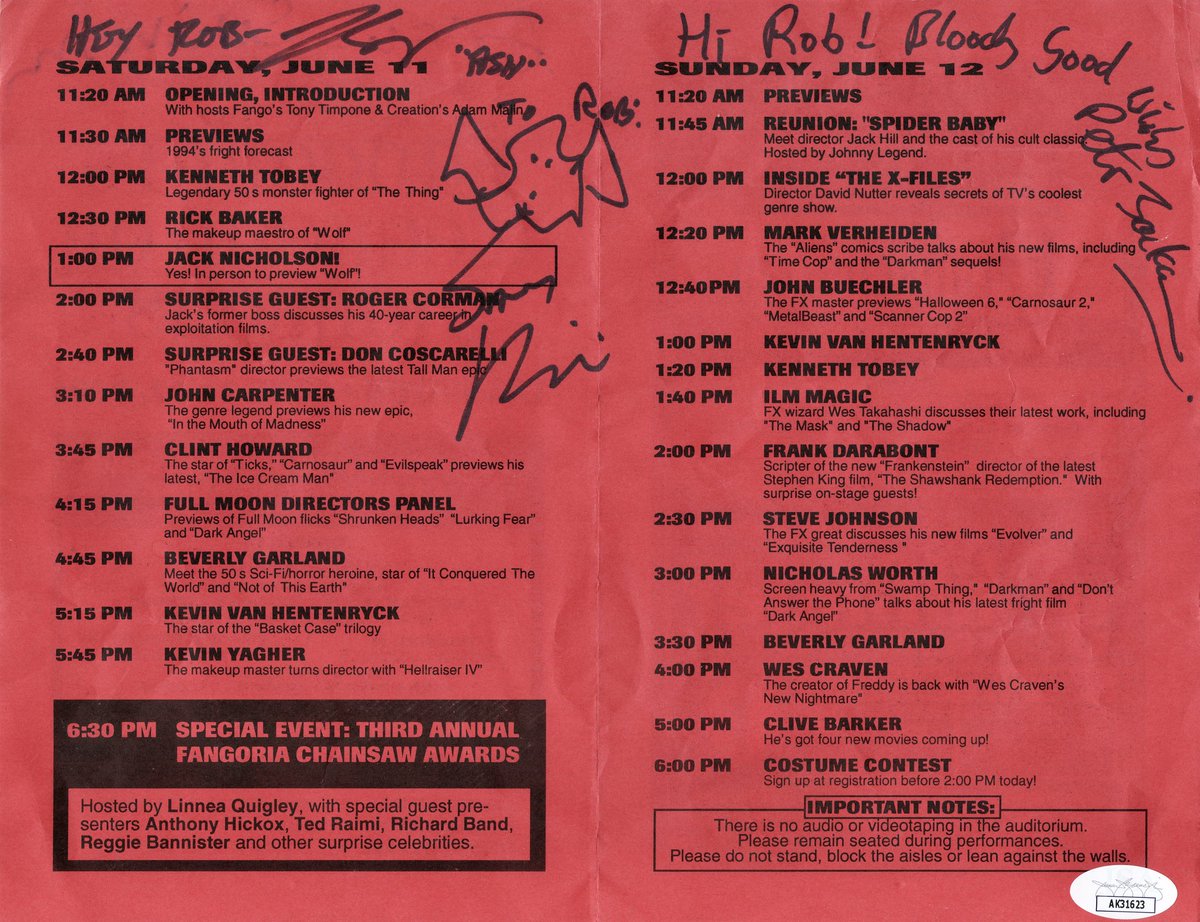 HEY ROB-
"ASH"
TO ROB:
SATURDAY, JUNE 11
11:20 AM OPENING, INTRODUCTION
With hosts Fango's Tony Timpone & Creation's Adam Malin
11:30 AM PREVIEWS
1994's fright forecast
12:00 PM KENNETH TOBEY
Legendary 50 s monster fighter of "The Thing"
12:30 PM RICK BAKER
The makeup maestro of "Wolf"
1:00 PM JACK NICHOLSON!
Yes! In person to preview "Wolf"!
2:00 PM SURPRISE GUEST: ROGER CORMAN
Jack's former boss discusses his 40-year career in
exploitation films.
2:40 PM SURPRISE GUEST: DON COSCARELLI
"Phantasm" director previews the latest Tall Man epic
3:10 PM JOHN CARPENTER
The genre legend previews his new epic,
"In the Mouth of Madness"
3:45 PM CLINT HOWARD
The star of "Ticks," "Carnosaur" and "Evilspeak" previews his
latest, "The Ice Cream Man"
4:15 PM FULL MOON DIRECTORS PANEL
Previews of Full Moon flicks "Shrunken Heads" "Lurking Fear"
and "Dark Angel"
4:45 PM BEVERLY GARLAND
Meet the 50 s Sci-Fi/horror heroine, star of "It Conquered The
World" and "Not of This Earth"
5:15 PM KEVIN VAN HENTENRYCK
The star of the "Basket Case" trilogy
5:45 PM KEVIN YAGHER
The makeup master turns director with "Hellraiser IV"
6:30 PM SPECIAL EVENT: THIRD ANNUAL
FANGORIA CHAINSAW AWARDS
Hosted by Linnea Quigley, with special guest pre-
senters Anthony Hickox, Ted Raimi, Richard Band,
Reggie Bannister and other surprise celebrities.
Hi Rob! Bloody Good
Wishes
Peter
SUNDAY, JUNE 12
11:20 AM PREVIEWS
11:45 AM REUNION: "SPIDER BABY"
Meet director Jack Hill and the cast of his cult classic.
Hosted by Johnny Legend.
12:00 PM INSIDE "THE X-FILES"
Director David Nutter reveals secrets of TV's coolest
genre show.
12:20 PM MARK VERHEIDEN
The "Aliens" comics scribe talks about his new films, including
"Time Cop" and the "Darkman" sequels!
12:40PM JOHN BUECHLER
The FX master previews "Halloween 6," "Carnosaur 2,"
"MetalBeast" and "Scanner Cop 2"
1:00 PM KEVIN VAN HENTENRYCK
1:20 PM KENNETH TOBEY
1:40 PM ILM MAGIC
FX wizard Wes Takahashi discusses their latest work, including
"The Mask" and "The Shadow"
2:00 PM FRANK DARABONT
Scripter of the new "Frankenstein" director of the latest
Stephen King film, "The Shawshank Redemption." With
surprise on-stage guests!
2:30 PM STEVE JOHNSON
The FX great discusses his new films "Evolver" and
"Exquisite Tenderness "
3:00 PM NICHOLAS WORTH
Screen heavy from "Swamp Thing," "Darkman" and "Don't
Answer the Phone" talks about his latest fright film
"Dark Angel"
3:30 PM BEVERLY GARLAND
4:00 PM WES CRAVEN
The creator of Freddy is back with "Wes Craven's
New Nightmare"
5:00 PM CLIVE BARKER
He's got four new movies coming up!
6:00 PM COSTUME CONTEST
Sign up at registration before 2:00 PM today!
IMPORTANT NOTES:
There is no audio or videotaping in the auditorium.
Please remain seated during performances.
Please do not stand, block the aisles or lean against the walls.
AK31623